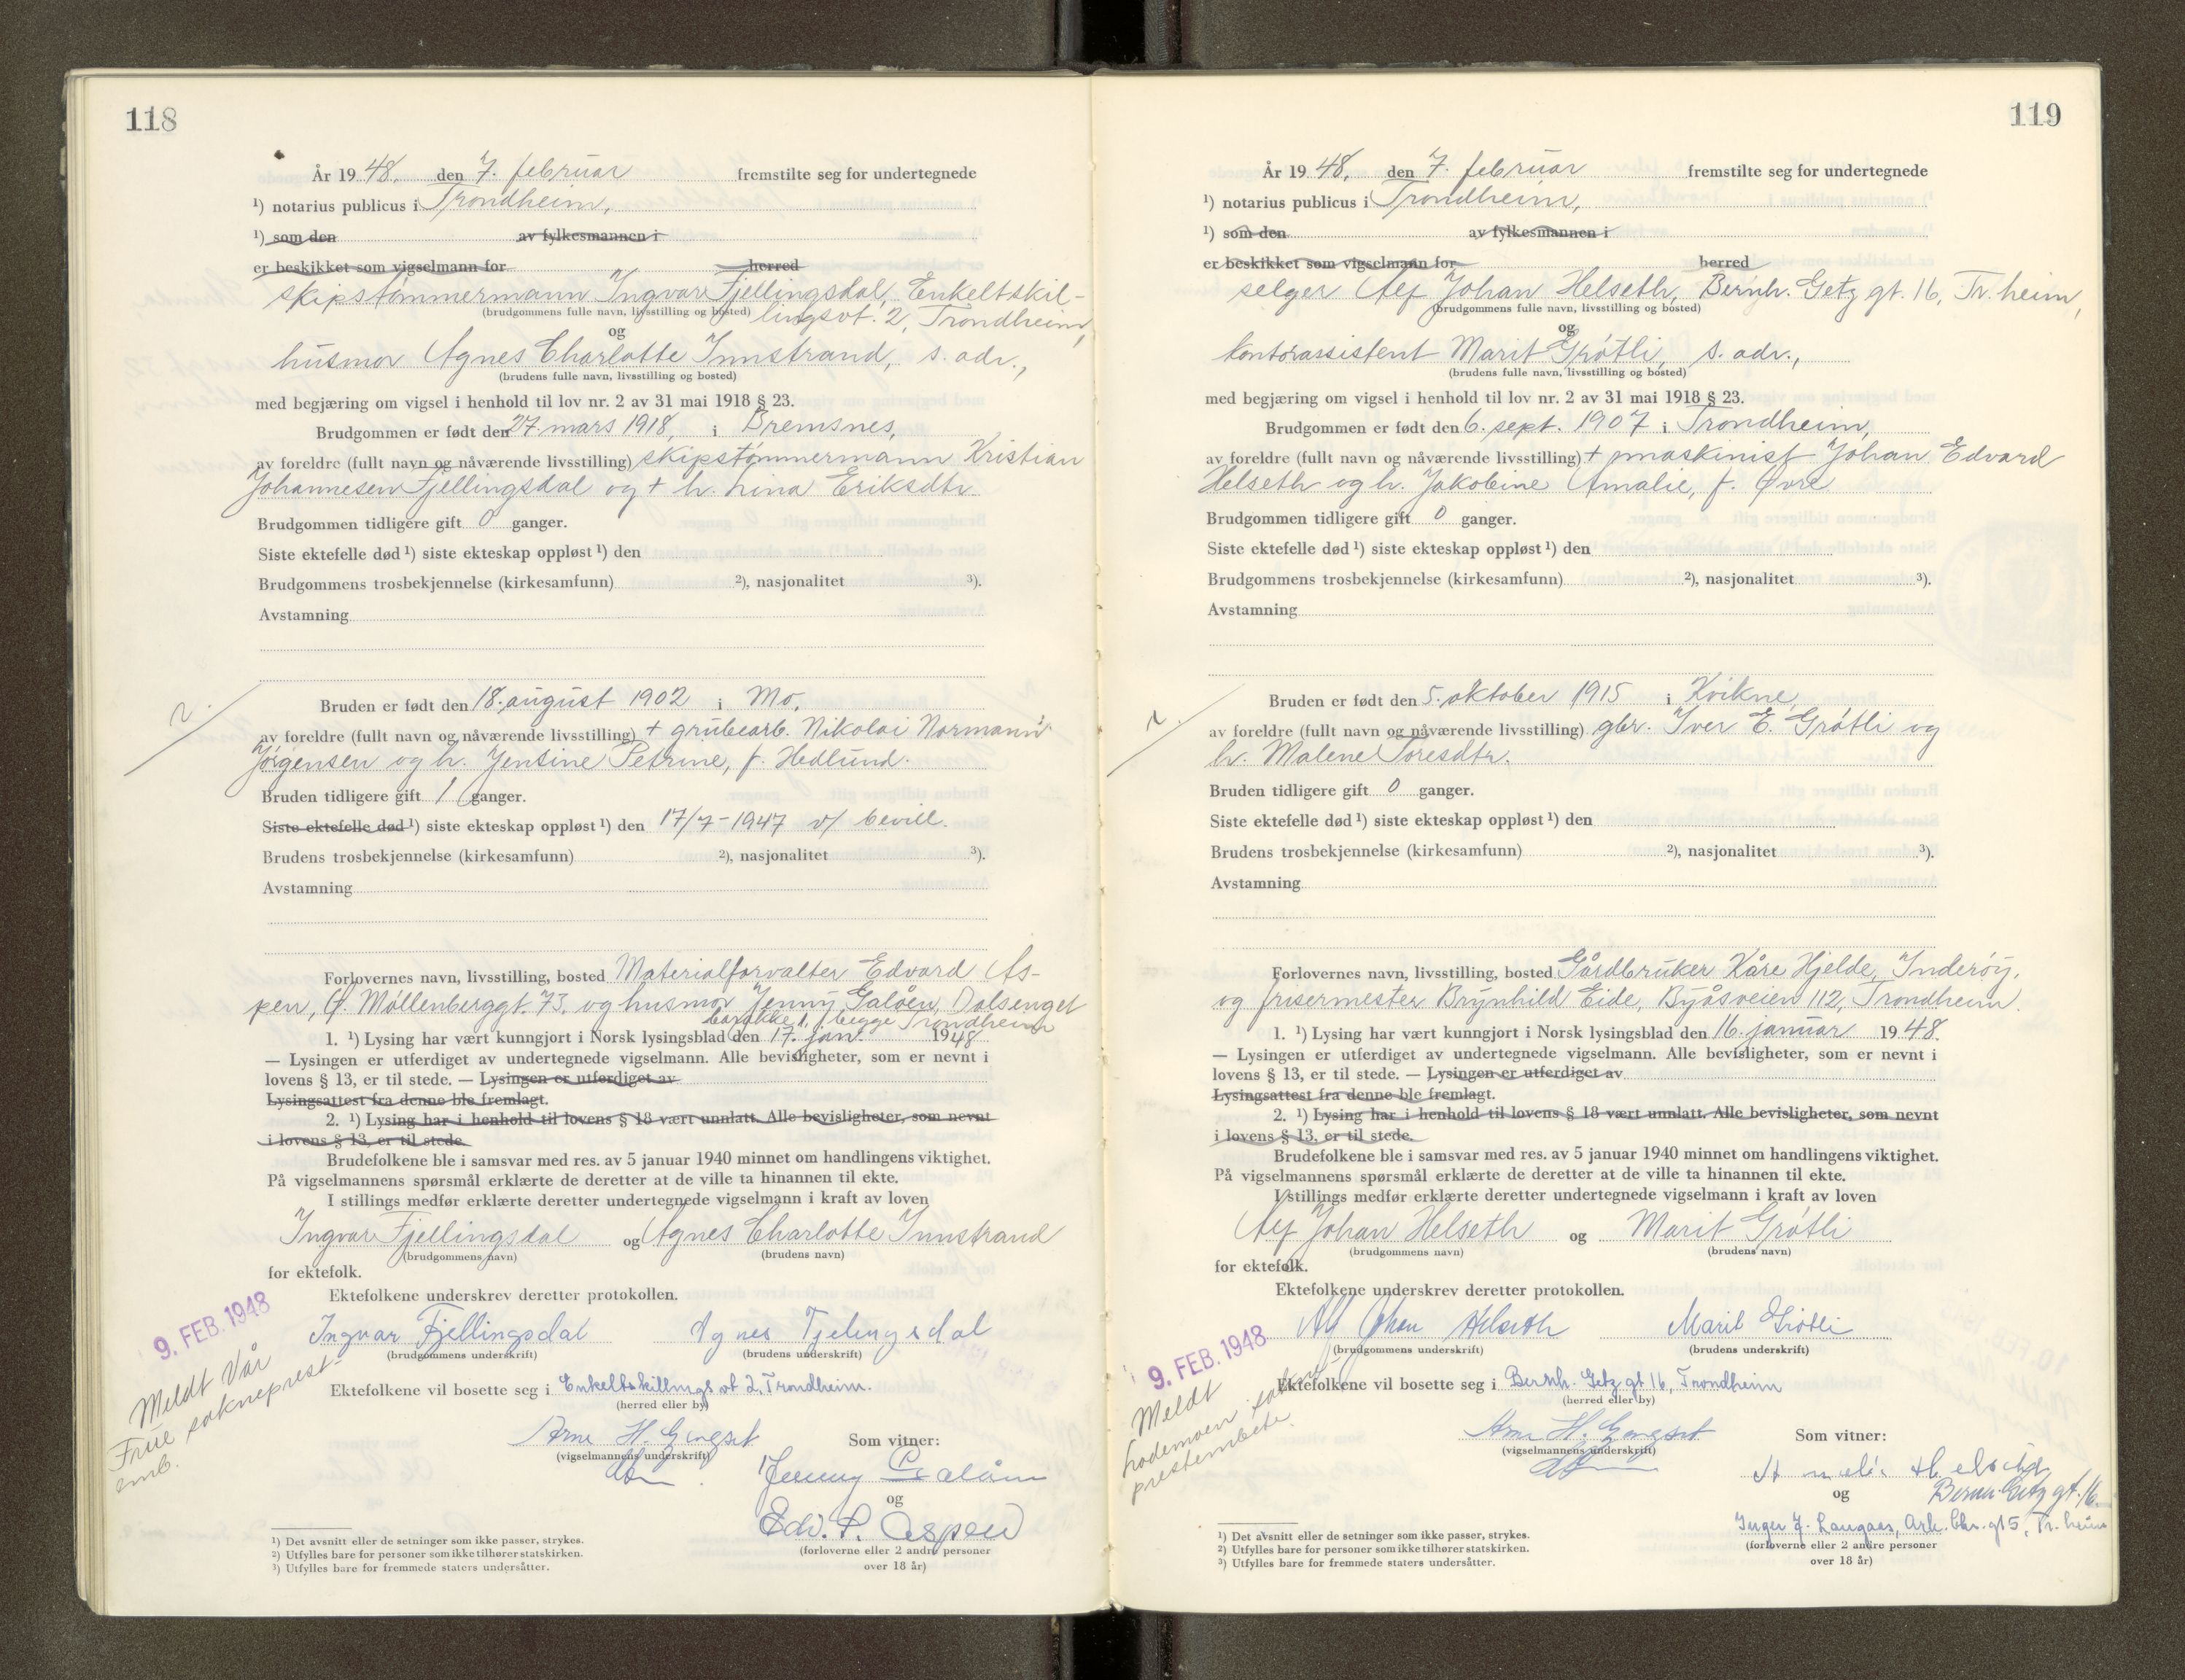 118
År 19 48. den 7. februar fremstilte seg for undertegnede
¹) notarius publicus i Trondheim,
¹) som den av fylkesmannen i
er beskikket som vigselmann for herred
skipstømmermann Ingvar Fjellingsdal, Enkeltskil-
(brudgommens fulle navn, livsstilling og bosted) lingsvt. 2, Trondheim,
og
husmor Agnes Charlotte Innstrand, s. adr.,
(brudens fulle navn, livsstilling og bosted)
med begjæring om vigsel i henhold til lov nr. 2 av 31 mai 1918 § 23.
Brudgommen er født den 27. mars 1918, i Bremsnes,
av foreldre (fullt navn og nåværende livsstilling) skipstømmermann Kristian
Johannesen Fjellingsdal og + h. Lina Eriksdtr.
Brudgommen tidligere gift 0 ganger.
Siste ektefelle død ¹) siste ekteskap oppløst ¹) den
Brudgommens trosbekjennelse (kirkesamfunn) ²), nasjonalitet ³).
Avstamning
2.
Bruden er født den 18. august 1902 i Mo,
av foreldre (fullt navn og nåværende livsstilling) + grubearb. Nikolai Normann
Jørgensen og h. Jensine Petrine, f. Hedlund.
Bruden tidligere gift 1 ganger.
Siste ektefelle død ¹) siste ekteskap oppløst ¹) den 17/7-1947 v/ bevill.
Brudens trosbekjennelse (kirkesamfunn) ²), nasjonalitet ³).
Avstamning
Forlovernes navn, livsstilling, bosted Materialforvalter Edvard As-
pen, Ø. Møllenberggt. 73, og husmor Jenny Galåen, Dalsenget
barakke 1, begge Trondheim
1. ¹) Lysing har vært kunngjort i Norsk lysingsblad den 17. jan. 1948
— Lysingen er utferdiget av undertegnede vigselmann. Alle bevisligheter, som er nevnt i
lovens § 13, er til stede. — Lysingen er utferdiget av
Lysingsattest fra denne ble fremlagt.
2. ¹) Lysing har i henhold til lovens § 18 vært unnlatt. Alle bevisligheter, som nevnt
i lovens § 13, er til stede.
Brudefolkene ble i samsvar med res. av 5 januar 1940 minnet om handlingens viktighet.
På vigselmannens spørsmål erklærte de deretter at de ville ta hinannen til ekte.
I stillings medfør erklærte deretter undertegnede vigselmann i kraft av loven
Ingvar Fjellingsdal og Agnes Charlotte Innstrand
(brudgommens navn) (brudens navn)
for ektefolk.
Ektefolkene underskrev deretter protokollen.
9. FEB. 1948
Ingvar Fjellingsdal Agnes Fjelingsdal
(brudgommens underskrift) (brudens underskrift)
Meldt Vår
Frue sokneprest-
emb.
Ektefolkene vil bosette seg i Enkeltskillings vt 2, Trondheim.
(herred eller by)
Arne H. Gingset
(vigselmannens underskrift)
Som vitner:
Jenny Galåen
og
Edv. P. Aspen
(forloverne eller 2 andre personer
over 18 år)
¹) Det avsnitt eller de setninger som ikke passer, strykes.
²) Utfylles bare for personer som ikke tilhører statskirken.
³) Utfylles bare for fremmede staters undersåtter.
119
År 19 48, den 7. februar fremstilte seg for undertegnede
¹) notarius publicus i Trondheim,
¹) som den av fylkesmannen i
er beskikket som vigselmann for herred
selger Alf Johan Helseth, Bernh. Getz gt. 16, Tr.heim,
(brudgommens fulle navn, livsstilling og bosted)
og
kontorassistent Marit Grøtli, s. adr.,
(brudens fulle navn, livsstilling og bosted)
med begjæring om vigsel i henhold til lov nr. 2 av 31 mai 1918 § 23.
Brudgommen er født den 6. sept. 1907 i Trondheim,
av foreldre (fullt navn og nåværende livsstilling) + maskinist Johan Edvard
Helseth og h. Jakobine Amalie, f. Øvre
Brudgommen tidligere gift 0 ganger.
Siste ektefelle død ¹) siste ekteskap oppløst ¹) den
Brudgommens trosbekjennelse (kirkesamfunn) ²), nasjonalitet ³).
Avstamning
2.
Bruden er født den 5. oktober 1915 i Kvikne,
av foreldre (fullt navn og nåværende livsstilling) gbr. Iver E. Grøtli og
h. Malene Toresdtr.
Bruden tidligere gift 0 ganger.
Siste ektefelle død ¹) siste ekteskap oppløst ¹) den
Brudens trosbekjennelse (kirkesamfunn) ²), nasjonalitet ³).
Avstamning
Forlovernes navn, livsstilling, bosted Gårdbruker Kåre Hjelde, Inderøy,
og frisermester Brynhild Eide, Byåsveien 112, Trondheim.
1. ¹) Lysing har vært kunngjort i Norsk lysingsblad den 16. januar 1948.
— Lysingen er utferdiget av undertegnede vigselmann. Alle bevisligheter, som er nevnt i
lovens § 13, er til stede. — Lysingen er utferdiget av
Lysingsattest fra denne ble fremlagt.
2. ¹) Lysing har i henhold til lovens § 18 vært unnlatt. Alle bevisligheter, som nevnt
i lovens § 13, er til stede.
Brudefolkene ble i samsvar med res. av 5 januar 1940 minnet om handlingens viktighet.
På vigselmannens spørsmål erklærte de deretter at de ville ta hinannen til ekte.
I stillings medfør erklærte deretter undertegnede vigselmann i kraft av loven
Alf Johan Helseth og Marit Grøtli
(brudgommens navn) (brudens navn)
for ektefolk.
Ektefolkene underskrev deretter protokollen.
9. FEB. 1948
Alf Johan Helseth Marit Grøtli
(brudgommens underskrift) (brudens underskrift)
Meldt
Lademoen
prestembete.
Ektefolkene vil bosette seg i Bernh. Getz gt 16, Trondheim
(herred eller by)
Arne H. Gingset
(vigselmannens underskrift)
Som vitner:
Amalie Helseth
og Bernh. Getz gt. 16.
Inger J. Langaas, Ark. Chr. gt 5, Tr. heim
(forloverne eller 2 andre personer
over 18 år)
¹) Det avsnitt eller de setninger som ikke passer, strykes.
²) Utfylles bare for personer som ikke tilhører statskirken.
³) Utfylles bare for fremmede staters undersåtter.